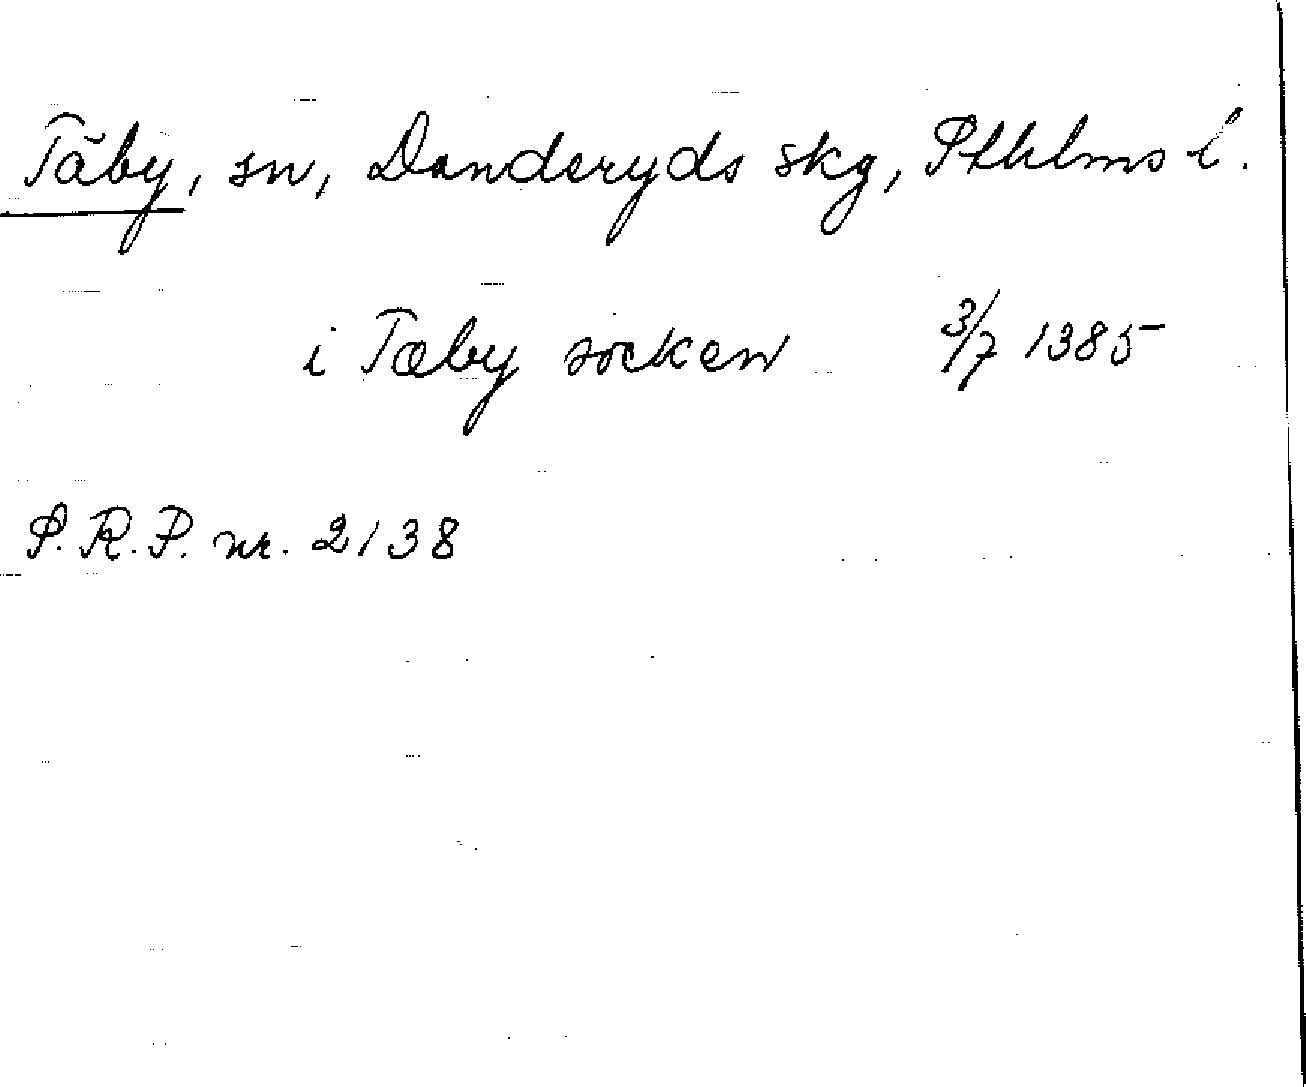 Täby, sn, Danderyds skg, Sthlms l.
i Tæby socken 3/7 1385
S.R.P. nr. 2138